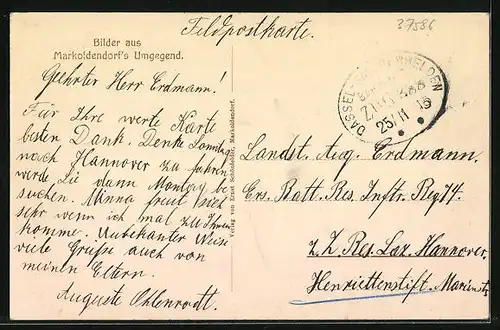 Feldpostkarte.
37586
Bilder aus
Markoldendorf's Umgegend.
Geehrter Herr Erdmann!
Für Ihre werte Karte
besten Dank. Denke Sonntag
nach Hannover zu fahren
werde Sie dann Montag be
suchen. Minna freut sich
sehr wenn ich mal zu Ihnen
komme. Unbekanter Weise
viele Grüße auch von
meinen Eltern.
Auguste Ohlenrodt.
Verlag von Ernst Markoldendorf.
DASSEL
ZUG 388
25/11 15
Landst. Aug. Erdmann.
Ers. Batt. Res. Inftr. Reg 74.
z. Z Res. Laz. Hannover,
Henriettenstift. Marienstr